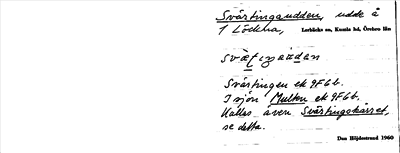 Svärtingaudden, udde å
1 Lödena, Lerbäcks sn, Kumla hd, Örebro län
Svärtingen ek 9F6b.
I sjön Multen ek 9F6b.
Kallas även Svärtingskärret,
se detta.
Dan Höjdestrand 1960